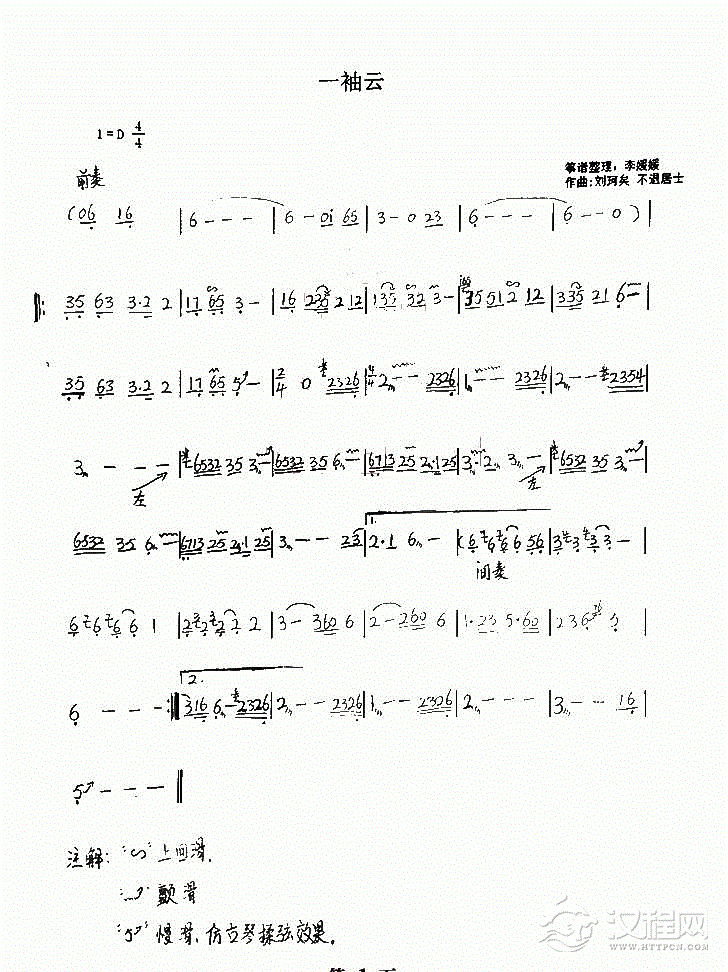 一袖云
1=D 4/4
筝谱整理：李媛媛
作曲:刘珂矣 不退居士
前奏
(06 16 | 6 - - - | 6 - 01 65 | 3 - 0 23 | 6 - - - | 6 - - 0 )
35 63 3·2 2 | 17 65 3 - | 16 235 2 12 |
35 63 3·2 2 | 17 65 5 - | 2/4 0 2326 | 4/4 2 - - 2326 | 1 - - 2326 | 2 - - 2354 |
3 - - - | 6532 35 3 - | 6532 35 6 - | 6713 25 2·1 25 | 3 - 2 3 - | 6532 35 3 - |
左 左
6532 35 6 - | 6713 25 2·1 25 | 3 - - 23 | 1. 2·1 6 - |
间奏
3 - 360 6 | 2 - 260 6 | 1·23 5·60 |
6 - - - :| 2. 316 6 - 2326 | 2 - - 2326 | 1 - - 2326 | 2 - - - | 3 - - 16 |
5 - - - ‖
注解： 上回滑.
颤滑
慢滑、仿古琴揉弦效果.
汉程网
WWW.HTTPCN.COM